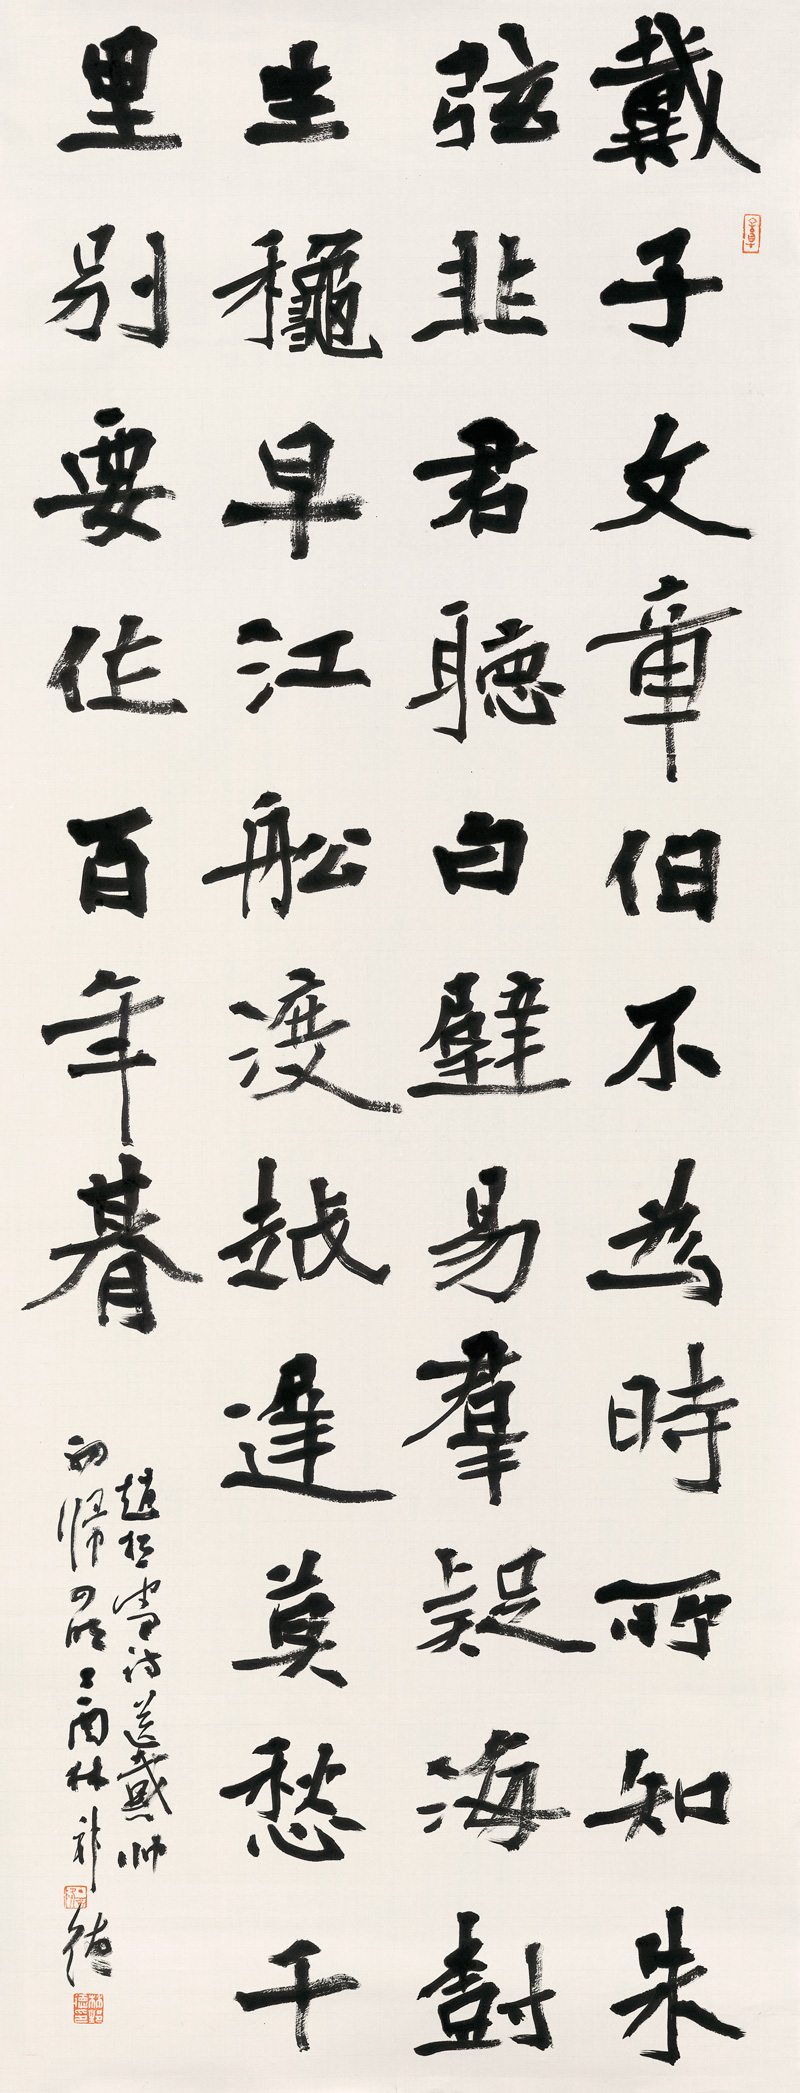 戴子文章伯不為時所知朱
弦非君聽白璧易羣疑海樹
生龝早江船渡越遲莫愁千
里別要作百年朞
趙松雪詩送戴帥
初歸四明酉林